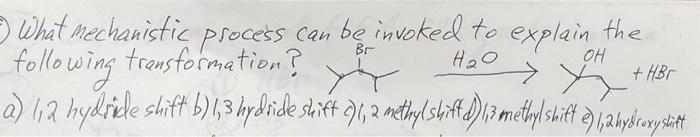 ) What mechanistic process can be invoked to explain the
following transformation? Br H2O OH + HBr
a) 1,2 hydride shift b) 1,3 hydride shift c) 1,2 methyl shift d) 1,3 methyl shift e) 1,2 hydroxy shift